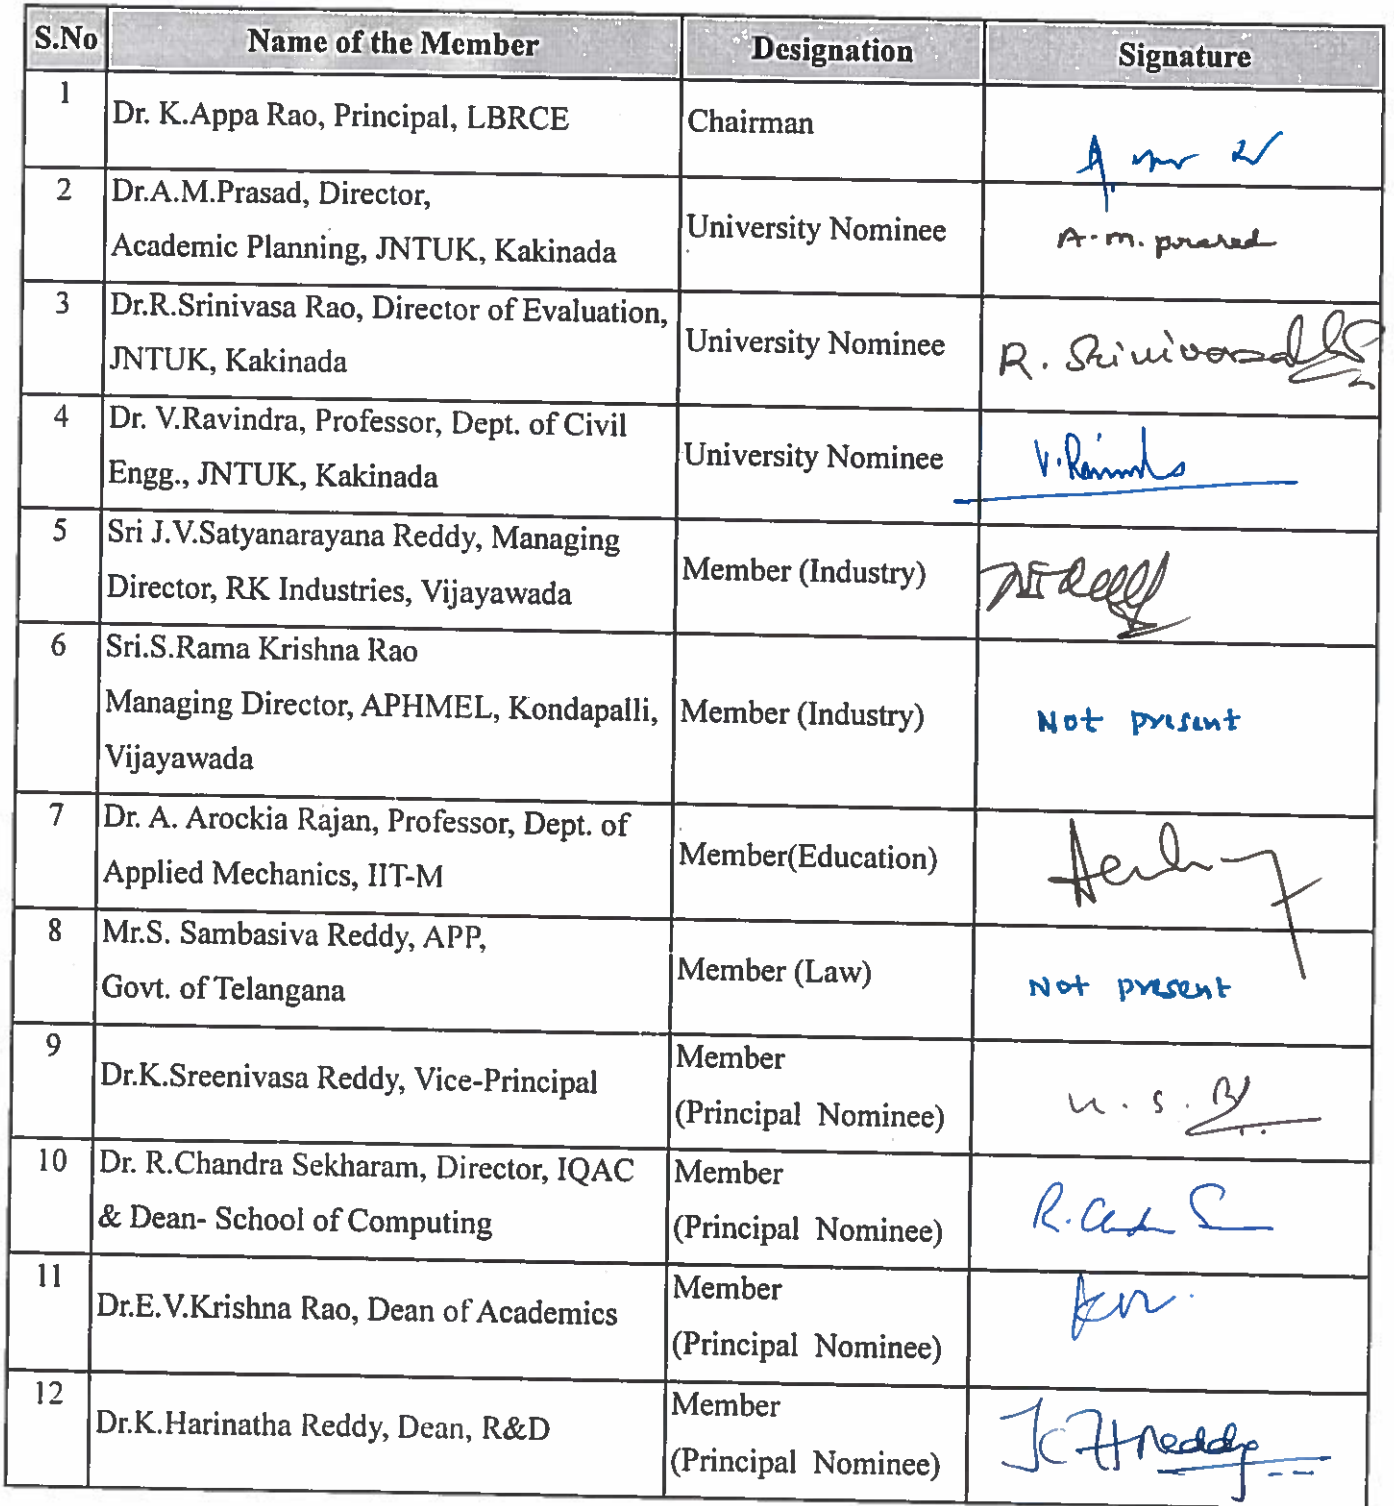 S.No Name of the Member Designation Signature
1 Dr. K.Appa Rao, Principal, LBRCE Chairman
2 Dr.A.M.Prasad, Director,
Academic Planning, JNTUK, Kakinada University Nominee A.m. prasad
3 Dr.R.Srinivasa Rao, Director of Evaluation,
JNTUK, Kakinada University Nominee R. Srinivasa
4 Dr. V.Ravindra, Professor, Dept. of Civil
Engg., JNTUK, Kakinada University Nominee V.
5 Sri J.V.Satyanarayana Reddy, Managing
Director, RK Industries, Vijayawada Member (Industry)
6 Sri.S.Rama Krishna Rao
Managing Director, APHMEL, Kondapalli,
Vijayawada Member (Industry) Not present
7 Dr. A. Arockia Rajan, Professor, Dept. of
Applied Mechanics, IIT-M Member(Education)
8 Mr.S. Sambasiva Reddy, APP,
Govt. of Telangana Member (Law) Not present
9 Dr.K.Sreenivasa Reddy, Vice-Principal Member
(Principal Nominee)
10 Dr. R.Chandra Sekharam, Director, IQAC
& Dean- School of Computing Member
(Principal Nominee) R.
11 Dr.E.V.Krishna Rao, Dean of Academics Member
(Principal Nominee)
12 Dr.K.Harinatha Reddy, Dean, R&D Member
(Principal Nominee) K H Reddy